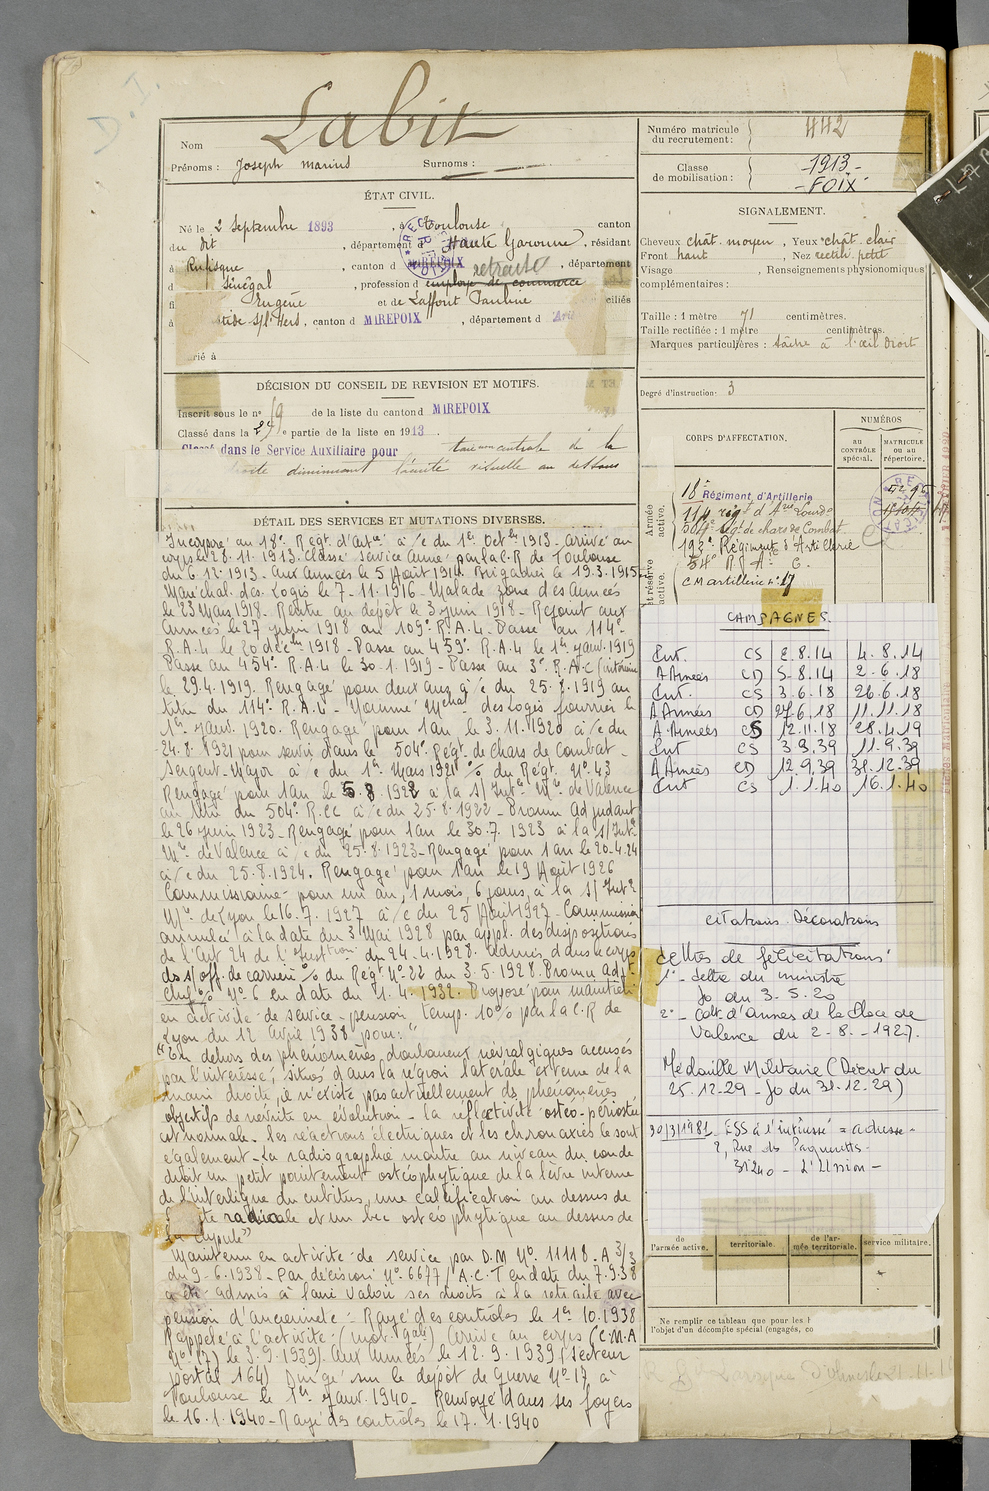 D.I.
Labit
Nom
Prénoms : Joseph Marius Surnoms :
ÉTAT CIVIL.
Né le 2 Septembre 1893, à Toulouse canton
du dit, département d Haute Garonne, résidant
à Rufisque, canton d MIREPOIX, département
d Sénégal, profession d employé de commerce retraité
Eugène et de Laffont Pauline ciliés
à stide s/l'Hers, canton d MIREPOIX, département d Ari
rié à
DÉCISION DU CONSEIL DE REVISION ET MOTIFS.
Inscrit sous le n° 19 de la liste du canton d MIREPOIX
Classé dans la 2e partie de la liste en 1913.
Classé dans le Service Auxiliaire pour taie centrale de la
droite diminuant l'acuité visuelle au dessous
DÉTAIL DES SERVICES ET MUTATIONS DIVERSES.
Incorporé au 18e Regt. d'Artie à/c du 1er Octbre 1913 - Arrivé au
corps le 28.11.1913. Classé service Armé par la C.R de Toulouse
du 6.12.1913 - Aux Armées le 5 Août 1914. Brigadier le 19.3.1915
Maréchal des Logis le 7.11.1916 - Malade zone des Armées
le 23 Mars 1918 - Rentré au dépôt le 3 juin 1918 - Rejoint aux
Armées le 27 juin 1918 au 109e R.A.L - Passé au 114e
R.A.L le 20 décbre 1918 - Passé au 459e R.A.L le 1er janv. 1919
Passé au 454e R.A.L le 30-1.1919 - Passé au 3e R.A.C (intérieur
le 29.4.1919. Rengagé pour deux ans à/c du 25.8.1919 au
titre du 114e R.A.L - Nommé Mchal des Logis fourrier le
1er Janv. 1920. Rengagé pour 1 an le 3.11.1920 à/c du
24.8.1921 pour servir dans le 504e Régt de chars de Combat -
Sergent-Major à/c du 1er Mars 1921 % du Régt. N° 43
Rengagé pour 1 an le 5.8.1922 à la s/Intce Mre de Valence
au titre du 504e R.CC à/c du 25.8.1922 - Promu Adjudant
le 26 juin 1923 - Rengagé pour 1 an le 30.7.1923 à la s/Intce
Mre de Valence à/c du 25.8.1923 - Rengagé pour 1 an le 20.4.24
à/c du 25.8.1924. Rengagé pour 1 an le 19 Août 1926
Commissionné pour un an, 1 mois, 6 jours, à la s/Intce
Mre de Lyon le 16.7.1927 à/c du 25 Août 1927 - Commission
annulée à la date du 3 Mai 1928 par appl. des dispositions
de l'Art 24 de l'Instion du 24.4.1928. Admis dans le corps
des s/off. de carrière % du Régt N° 22 du 3.5.1928. Promu Adjt
Chef % N° 6 en date du 1.4.1932. Proposé pour maintien
en activité de service - pension temp. 10% par la C.R de
Lyon du 12 Avril 1938 pour :"
"En dehors des phénomènes douloureux névralgiques accusés
par l'intéressé, situés dans la région latérale externe de la
main droite, il n'existe pas actuellement de phénomènes
objectifs de névrite en évolution - la réflectivité ostéo-périostée
est normale - les réactions électriques et les chronaxies le sont
également - La radiographie montre au niveau du coude
droit un petit pointement ostéophytique de la lèvre interne
de l'interligne du cubitus, une calcification au dessus de
la tête radiale et un bec ostéophytique au dessus de
la cupule"
Maintenu en activité de service par D.M N° 11118.A 3/3
du 9-6.1938 - Par décision N° 6677/A.C.T en date du 7.9.38
a été admis à faire valoir ses droits à la retraite avec
pension d'ancienneté - Rayé des contrôles le 1er 10.1938
Rappelé à l'activité (mob. gale) Arrivé au corps (C.M.A
N° 17) le 3.9.1939). Aux Armées le 12.9.1939 (Secteur
postal 164) Dirigé sur le dépôt de Guerre N° 17 à
Toulouse le 1er Janv. 1940 - Renvoyé dans ses foyers
le 16.1.1940 - Rayé des contrôles le 17.1.1940
Numéro matricule du recrutement : 442
Classe de mobilisation : 1913 - FOIX
SIGNALEMENT.
Cheveux chât. moyen, Yeux chât. clair
Front haut, Nez rectil. petit
Visage, Renseignements physionomiques
complémentaires :
Taille : 1 mètre 71 centimètres.
Taille rectifiée : 1 mètre centimètres.
Marques particulières : tâche à l'œil droit
Degré d'instruction : 3
CORPS D'AFFECTATION.
NUMÉROS
au CONTRÔLE spécial.
MATRICULE ou au répertoire.
Armée active.
et réserve active.
18e Régiment d'Artillerie
114 régt d'Arie Lourde
504e Régt de chars de Combat
192e Régiment d'Artillerie
54e R A C.
C M artillerie n° 17
CAMPAGNES.
Int. CS 2.8.14 4.8.14
A Armées CD 5.8.14 2.6.18
Int. CS 3.6.18 26.6.18
A Armées CD 27.6.18 11.11.18
A. Armées CS 12.11.18 28.4.19
Int CS 3.9.39 11.9.39
A Armées CD 12.9.39 31.12.39
Int CS 1.1.40 16.1.40
Citations. Décorations
Lettres de félicitations :
1° - Lettre du ministre
Jo du 3.5.20
2° - Cdt d'Armes de la Place de
Valence du 2-8-1927.
Médaille Militaire (Décret du
25.12.29 - Jo du 31.12.29)
30/3/1981 ESS à l'intéressé = adresse -
2, Rue des Paquerettes -
31240 - L'Union -
de l'armée active.
territoriale.
de l'armée territoriale.
service militaire.
Ne remplir ce tableau que pour les
l'objet d'un décompte spécial (engagés, co